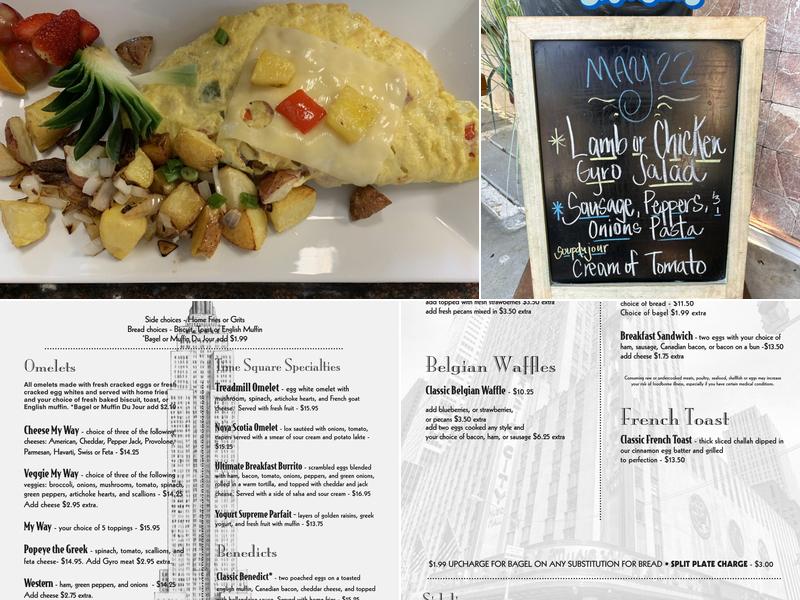 MAY 22
* Lamb or Chicken
Gyro Salad
* Sausage, Peppers, &
Onions Pasta
soup du jour
Cream of Tomato
Side choices - Home Fries or Grits
Bread choices - Biscuit, Toast or English Muffin
*Bagel or Muffin Du Jour add $1.99
Omelets
All omelets made with fresh cracked eggs or fresh
cracked egg whites and served with home fries
and your choice of fresh baked biscuit, toast, or
English muffin. *Bagel or Muffin Du Jour add $2.10
Cheese My Way - choice of three of the following
cheeses: American, Cheddar, Pepper Jack, Provolone,
Parmesan, Havarti, Swiss or Feta - $14.25
Veggie My Way - choice of three of the following
veggies: broccoli, onions, mushrooms, tomato, spinach,
green peppers, artichoke hearts, and scallions - $14.25
Add cheese $2.95 extra.
My Way - your choice of 5 toppings - $15.95
Popeye the Greek - spinach, tomato, scallions, and
feta cheese- $14.95. Add Gyro meat $2.95 extra.
Western - ham, green peppers, and onions - $14.25
Add cheese $2.75 extra.
Time Square Specialties
Treadmill Omelet - egg white omelet with
mushroom, spinach, artichoke hearts, and French goat
cheese. Served with fresh fruit - $15.95
Nova Scotia Omelet - lox sautéed with onions, tomato,
capers served with a smear of sour cream and potato latke -
$15.25
Ultimate Breakfast Burrito - scrambled eggs blended
with ham, bacon, tomato, onions, peppers, and green onions,
rolled in a warm tortilla, and topped with cheddar and jack
cheese. Served with a side of salsa and sour cream - $16.95
Yogurt Supreme Parfait - layers of golden raisins, greek
yogurt, and fresh fruit with muffin - $13.75
Benedicts
Classic Benedict* - two poached eggs on a toasted
english muffin, Canadian bacon, cheddar cheese, and topped
add topped with fresh strawberries $3.50 extra
add fresh pecans mixed in $3.50 extra
Belgian Waffles
Classic Belgian Waffle - $10.25
add blueberries, or strawberries,
or pecans $3.50 extra
add two eggs cooked any style and
your choice of bacon, ham, or sausage $6.25 extra
choice of bread - $11.50
Choice of bagel $1.99 extra
Breakfast Sandwich - two eggs with your choice of
ham, sausage, Canadian bacon, or bacon on a bun -$13.50
add cheese $1.75 extra
Consuming raw or undercooked meats, poultry, seafood, shellfish or eggs may increase
your risk of foodborne illness, especially if you have certain medical conditions.
French Toast
Classic French Toast - thick sliced challah dipped in
our cinnamon egg batter and grilled
to perfection - $13.50
$1.99 UPCHARGE FOR BAGEL ON ANY SUBSTITUTION FOR BREAD • SPLIT PLATE CHARGE - $3.00